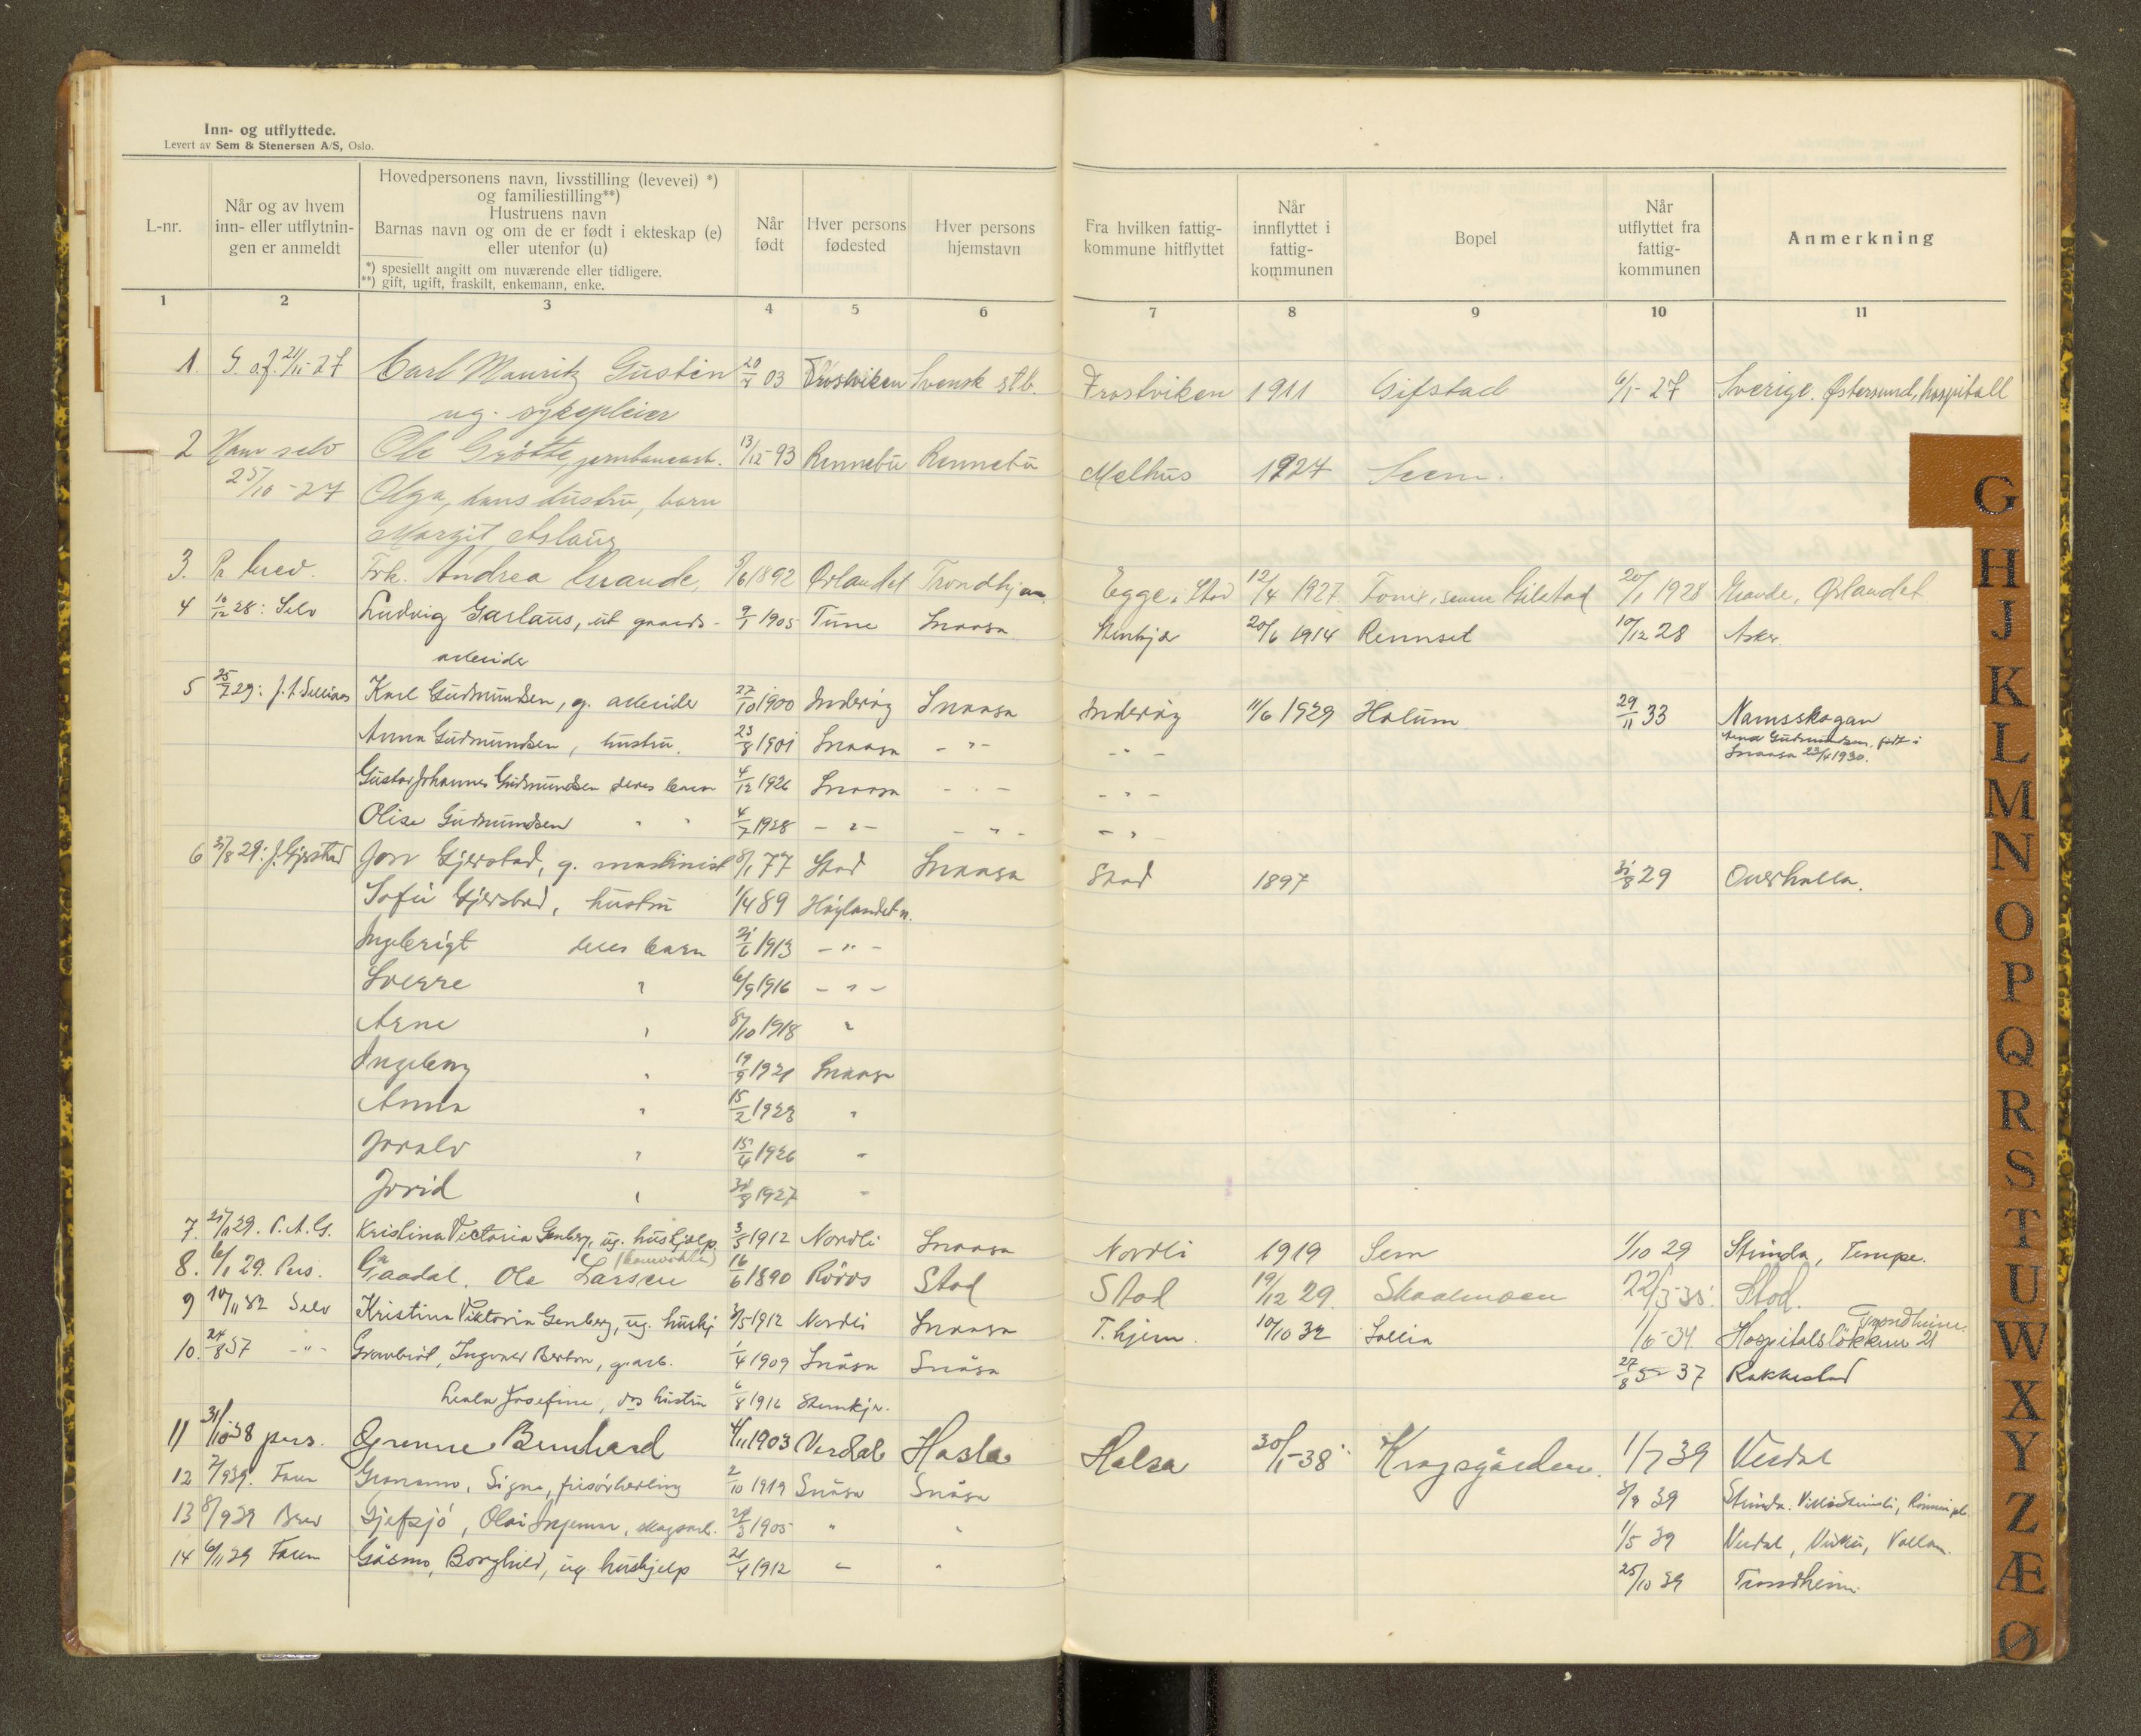 Inn- og utflyttede.
Levert av Sem & Stenersen A/S, Oslo.
L-nr.
Når og av hvem
inn- eller utflytnin-
gen er anmeldt
Hovedpersonens navn, livsstilling (levevei) *)
og familiestilling**)
Hustruens navn
Barnas navn og om de er født i ekteskap (e)
eller utenfor (u)
*) spesiellt angitt om nuværende eller tidligere.
**) gift, ugift, fraskilt, enkemann, enke.
Når
født
Hver persons
fødested
Hver persons
hjemstavn
Fra hvilken fattig-
kommune hitflyttet
Når
innflyttet i
fattig-
kommunen
Bopel
Når
utflyttet fra
fattig-
kommunen
Anmerkning
1 2 3 4 5 6 7 8 9 10 11
1. G. o.f. 21/11-27 Carl Mauritz Gustin 20/7 03 Frostviken Svensk stb. Frostviken 1911 Gifstad 6/1-27 Sverige. Østersund, hospitall
ug. sykepleier
2 Han selv Ole Grøtte, jernbanearb. 13/12-93 Rennebu Rennebu Melhus 1927 Seem.
25/10-27 Olga, hans hustru, barn
Margit, Aslaug
3. Pr brev. Frk. Andrea Grande, 5/6 1892 Ørlandet Trondhjem. Egge, Stod 12/4 1927 senere Gilstad 20/1 1928 Grande, Ørlandet
4 10/12 28: Selv Ludvig Garlaus, ut gaards- 9/1 1905 Tune Snaasa Stenkjer 20/6 1914 Rennset 10/12 28 Asker.
arbeider
5 25/7 29: Karl Gudmundsen, g. arbeider 27/10 1900 Inderøy Snaasa Inderøy 11/6 1929 Halum 29/11 33 Namsskogan
Gudmundsen, født i
Snaasa 23/4 1930.
Anna Gudmundsen, hustru. 23/8 1901 Snaasa - " - - " -
Gustav Johannes Gudmundsen deres barn 4/12 1926 Snaasa - " - - " -
Olise Gudmundsen " " 4/7 1928 - " - - " - - " -
6 31/8 29: J. Gjerstad Jon Gjerstad, g. maskinist 8/1 77 Stod Snaasa Stod 1897 31/8 29 Overhalla.
Sofie Gjerstad, hustru 1/4 89 Høylandet n.
Ingebrigt deres barn 21/6 1913 - " -
Sverre " 6/9 1916 - " -
Arne " 8/10 1918 "
Ingeborg " 19/9 1921 Snaasa
Anna " 15/2 1923 "
Joralv " 15/4 1926 "
Jorid " 31/8 1927 "
7. 29. P. A. G. Kristina Victoria Genberg, ug. hushjelp. 3/5 1912 Nordli Snaasa Nordli 1919 Sem 1/10 29 Strinda, Tempe.
8. 6/1 29. Pers. Gaadal. Ole Larsen 16/6 1890 Röros Stod Stod 19/12 29. Skaalmoen 22/3-35. Stod.
9 10/11 32 Selv Kristina Viktoria Genberg, ug. hushj 3/5 1912 Nordli Snaasa T.hjem. 10/10 32 1/6-34. Hospitalsløkken 21
Trondheim.
10. 24/8 37 - " - Ingvar g. arb. 1/4 1909 Snåsa Snåsa 27/8 37 Rakkestad
Josefine, hustru 6/8 1916 Stenkjer.
11 31/10-38 pers. Grenne Bernhard 4/11 1903 Verdal Hasla Halsa 30/1-38 Krogsgården. 1/7 39 Verdal
12 7/9 39. Faren Granamo, Signe, frisørlærling 2/10 1919 Snåsa Snåsa 3/9 39 Strinda.
13 8/9 39 Brev Gjefsjö, Olai Ingemar, skogsarb. 28/3 1905 " " 1/5 39 Verdal,
14 6/11 39 Faren Gåsmo, Borghild, ug. hushjelp 21/4 1912 " " 25/10 39 Trondheim.
G
H
J
K
L
M
N
O
P
Q
R
S
T
U
W
X
Y
Z
Æ
Ø